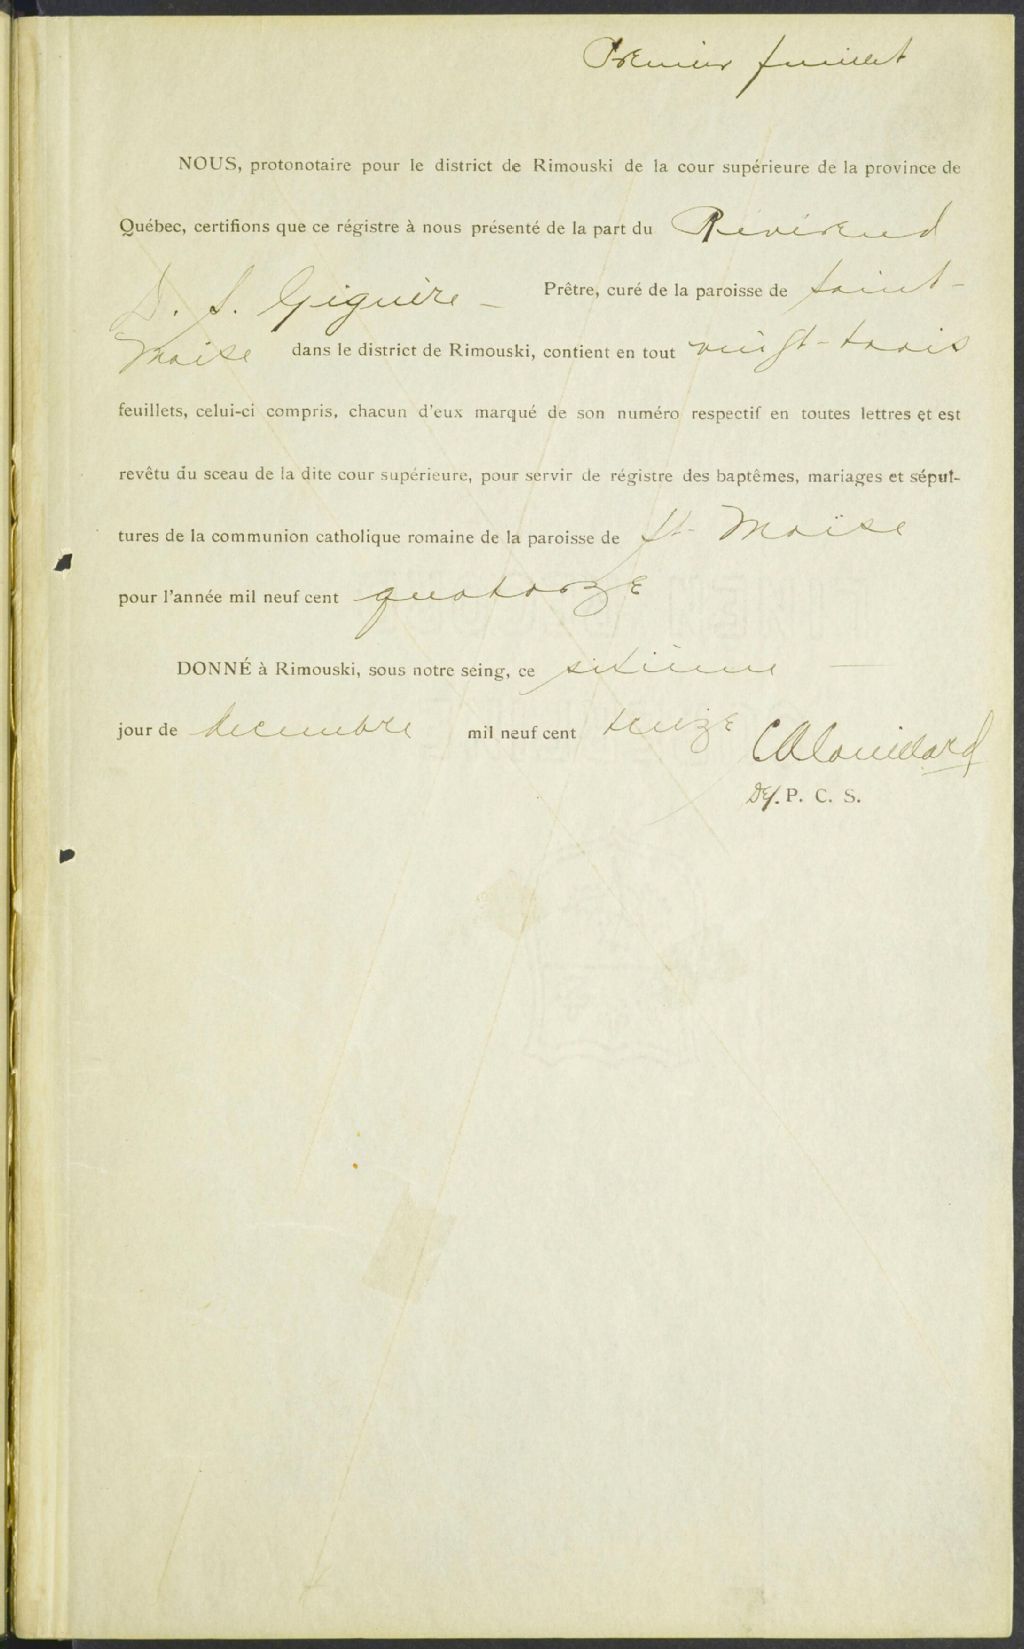 Premier feuillet
NOUS, protonotaire pour le district de Rimouski de la cour supérieure de la province de
Québec, certifions que ce régistre à nous présenté de la part du Révérend
D. S. Giguère — Prêtre, curé de la paroisse de Saint-
Moïse dans le district de Rimouski, contient en tout vingt-trois
feuillets, celui-ci compris, chacun d'eux marqué de son numéro respectif en toutes lettres et est
revêtu du sceau de la dite cour supérieure, pour servir de régistre des baptêmes, mariages et sépul-
tures de la communion catholique romaine de la paroisse de St Moïse
pour l'année mil neuf cent quatorze
DONNÉ à Rimouski, sous notre seing, ce sixième —
jour de decembre mil neuf cent treize
Dep. P. C. S.